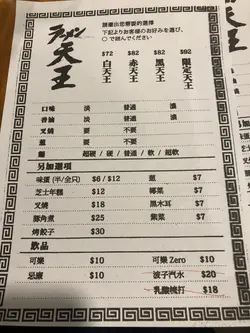 ラーメン
天王
請圈出您需要的選擇
下記よりお客様のお好みを選び、
○で囲んでください
$72 $82 $82 $92
白天王 赤天王 黑天王 限定天王
口味 淡 普通 濃
香油 淡 普通 濃
叉燒 要 不要
蔥 要 不要
麵 超硬 / 硬 / 普通 / 軟 / 超軟
另加選項
味蛋 (半/全只) $6 / $12 蔥 $7
芝士年糕 $12 椰菜 $7
叉燒 $18 黑木耳 $7
豚角煮 $25 紫菜 $7
烤餃子 $30
飲品
可樂 $10 可樂 Zero $10
忌廉 $10 波子汽水 $20
乳酸梳打 $18